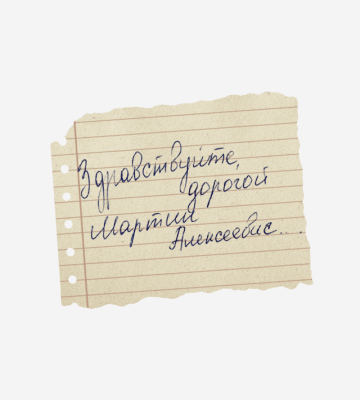 Здравствуйте,
дорогой
Мартин
Алексеевич....